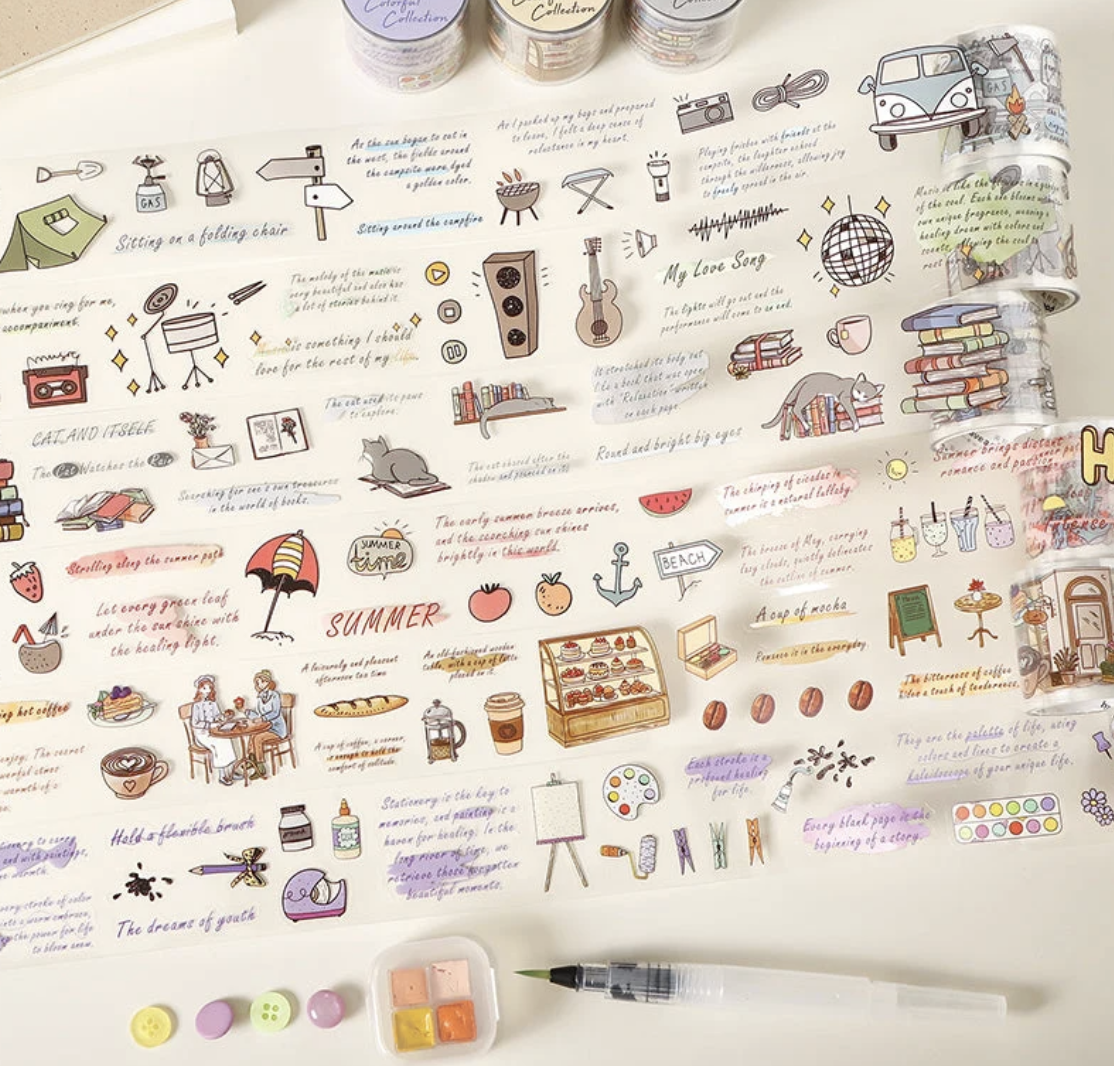 Colorful
Collection
Collection
Collection
As the sun began to set in
the west, the fields around
the campsite were dyed
a golden color.
As I packed up my bags and prepared
to leave, I felt a deep sense of
reluctance in my heart.
Playing frisbee with friends at the
campsite, the laughter echoed
through the wilderness, allowing joy
to freely spread in the air.
GAS
GAS
Sitting on a folding chair
Sitting around the campfire
Music is like the flowers in a garden
of the soul. Each one blooms with
own unique fragrance, weaving a
healing dream with colors and
scents, allowing the soul to
rest
when you sing for me,
accompaniment.
The melody of the music is
very beautiful and also has
a lot of stories behind it.
My Love Song
The lights will go out and the
performance will come to an end.
music
is something I should
love for the rest of my life.
CAT AND ITSELF
The Cat Watches the Rain
The cat uses its paws
to explore.
It stretched its body out
like a book that was open
with "Relaxation" written
on each page.
Searching for one's own treasures
in the world of books.
The cat chased after the
shadow and pounced on it.
Round and bright big eyes
Strolling along the summer path
SUMMER
time
The early summer breeze arrives,
and the scorching sun shines
brightly in this world.
The chirping of cicadas in
summer is a natural lullaby.
Summer brings distant
romance and
H
Intense
Let every green leaf
under the sun shine with
the healing light.
SUMMER
BEACH
The breeze of May, carrying
lazy clouds, quietly delineates
the outline of summer.
ing hot coffee
A leisurely and pleasant
afternoon tea time
An old-fashioned wooden
table, with a cup of latte
placed on it.
A cup of mocha
Romance is in the everyday.
Menu
The bitterness of coffee
a touch of tenderness.
enjoy. The secret
warmth of a
A cup of coffee, a corner,
is enough to hold the
comfort of solitude.
Each stroke is a
profound healing
for life.
They are the palette of life, using
colors and lines to create a
kaleidoscope of your unique life.
to carry
and with paintings,
warmth.
Hold a flexible brush
Stationery is the key to
memories, and painting is a
haven for healing. In the
long river of time, we
retrieve those forgotten
beautiful moments.
Every blank page is the
beginning of a story.
every stroke of color
into a warm embrace,
the power for life
to bloom anew.
The dreams of youth